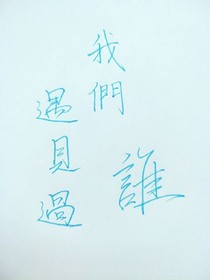 我們
遇見過
誰